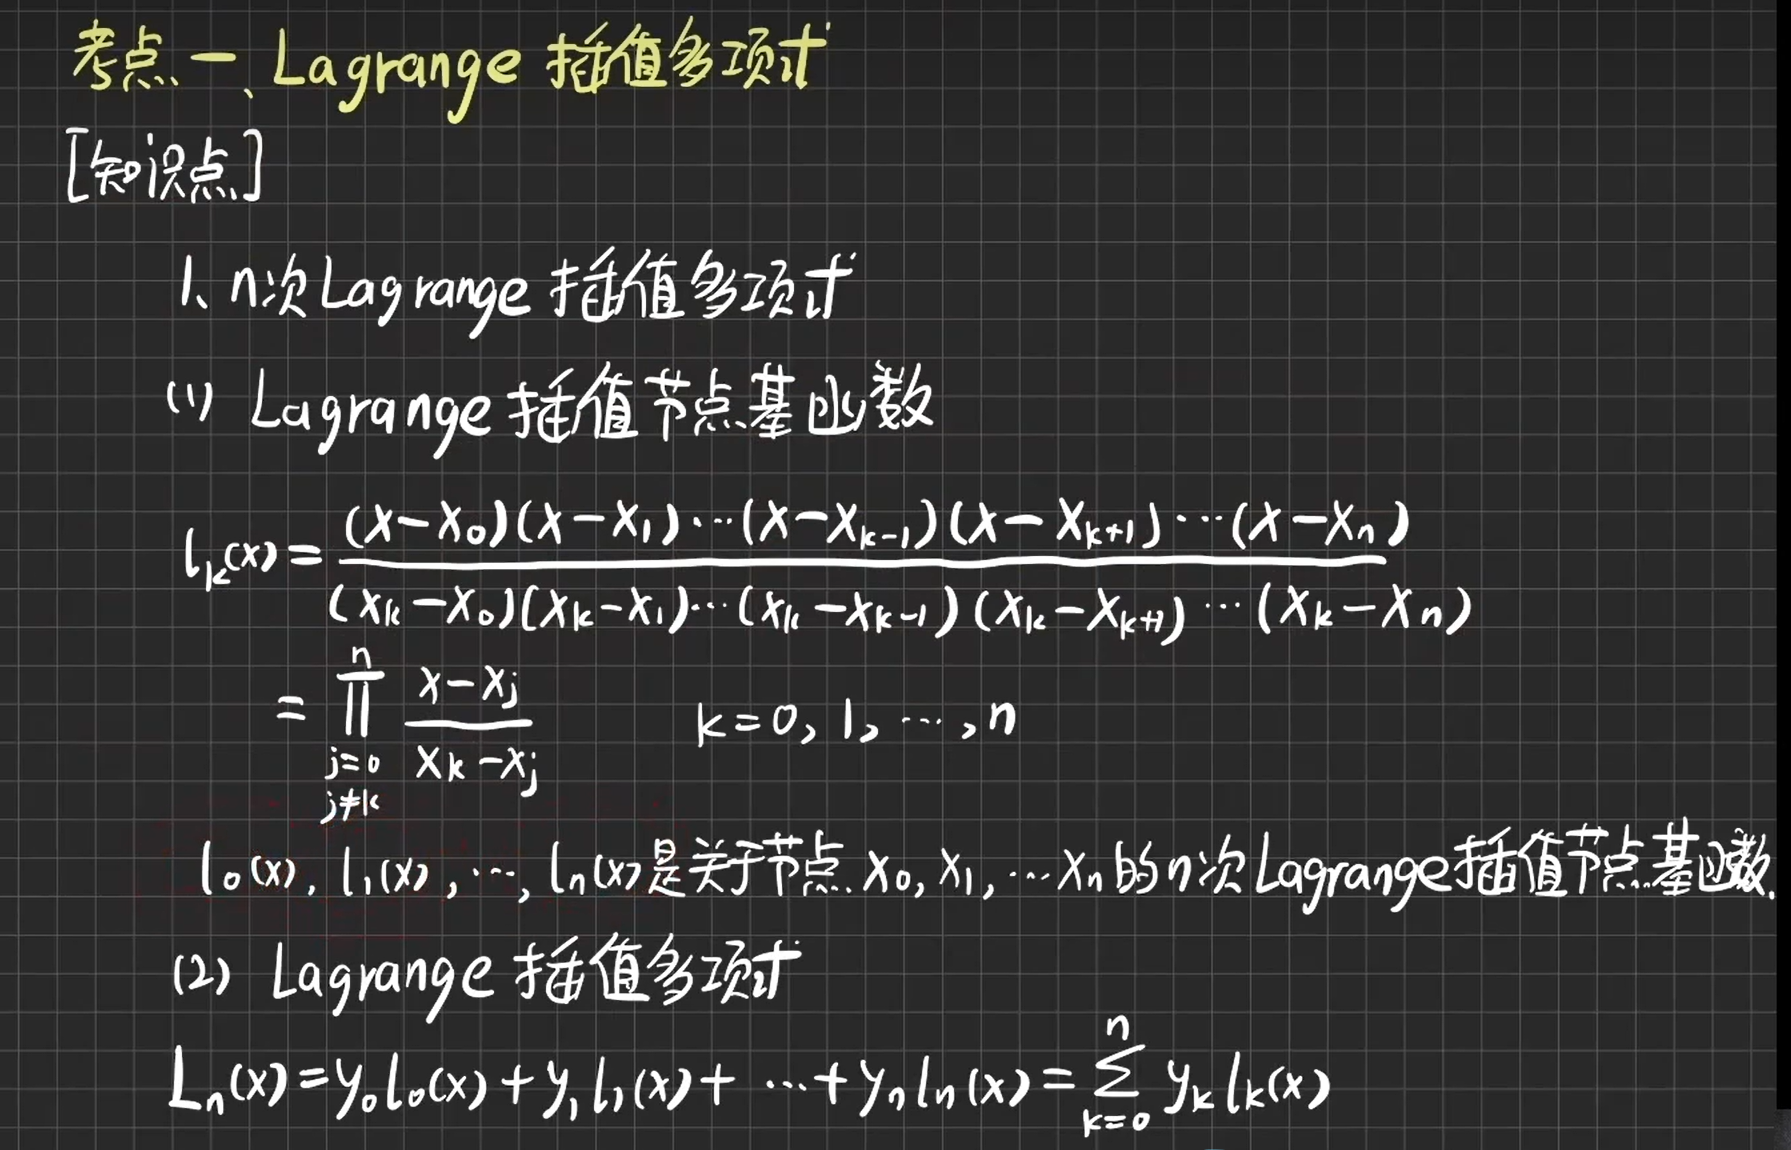 考点一、Lagrange 插值多项式
[知识点]
1、n次Lagrange 插值多项式
(1) Lagrange 插值节点基函数
l_k(x) = \frac{(x-x_0)(x-x_1)\cdots(x-x_{k-1})(x-x_{k+1})\cdots(x-x_n)}{(x_k-x_0)(x_k-x_1)\cdots(x_k-x_{k-1})(x_k-x_{k+1})\cdots(x_k-x_n)}
= \prod_{\substack{j=0 \\ j\neq k}}^{n} \frac{x-x_j}{x_k-x_j} k=0, 1, \cdots, n
l_0(x), l_1(x), \cdots, l_n(x)是关于节点 x_0, x_1, \cdots x_n 的n次Lagrange插值节点基函数.
(2) Lagrange 插值多项式
L_n(x) = y_0 l_0(x) + y_1 l_1(x) + \cdots + y_n l_n(x) = \sum_{k=0}^{n} y_k l_k(x)